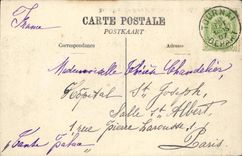 France
CARTE POSTALE
POSTKAART
Correspondance
Adresse
TOURNAI
Mademoiselle Chandelier
Hôpital St Joseph,
Salle St Albert,
1, rue Pierre Larousse,
Paris.